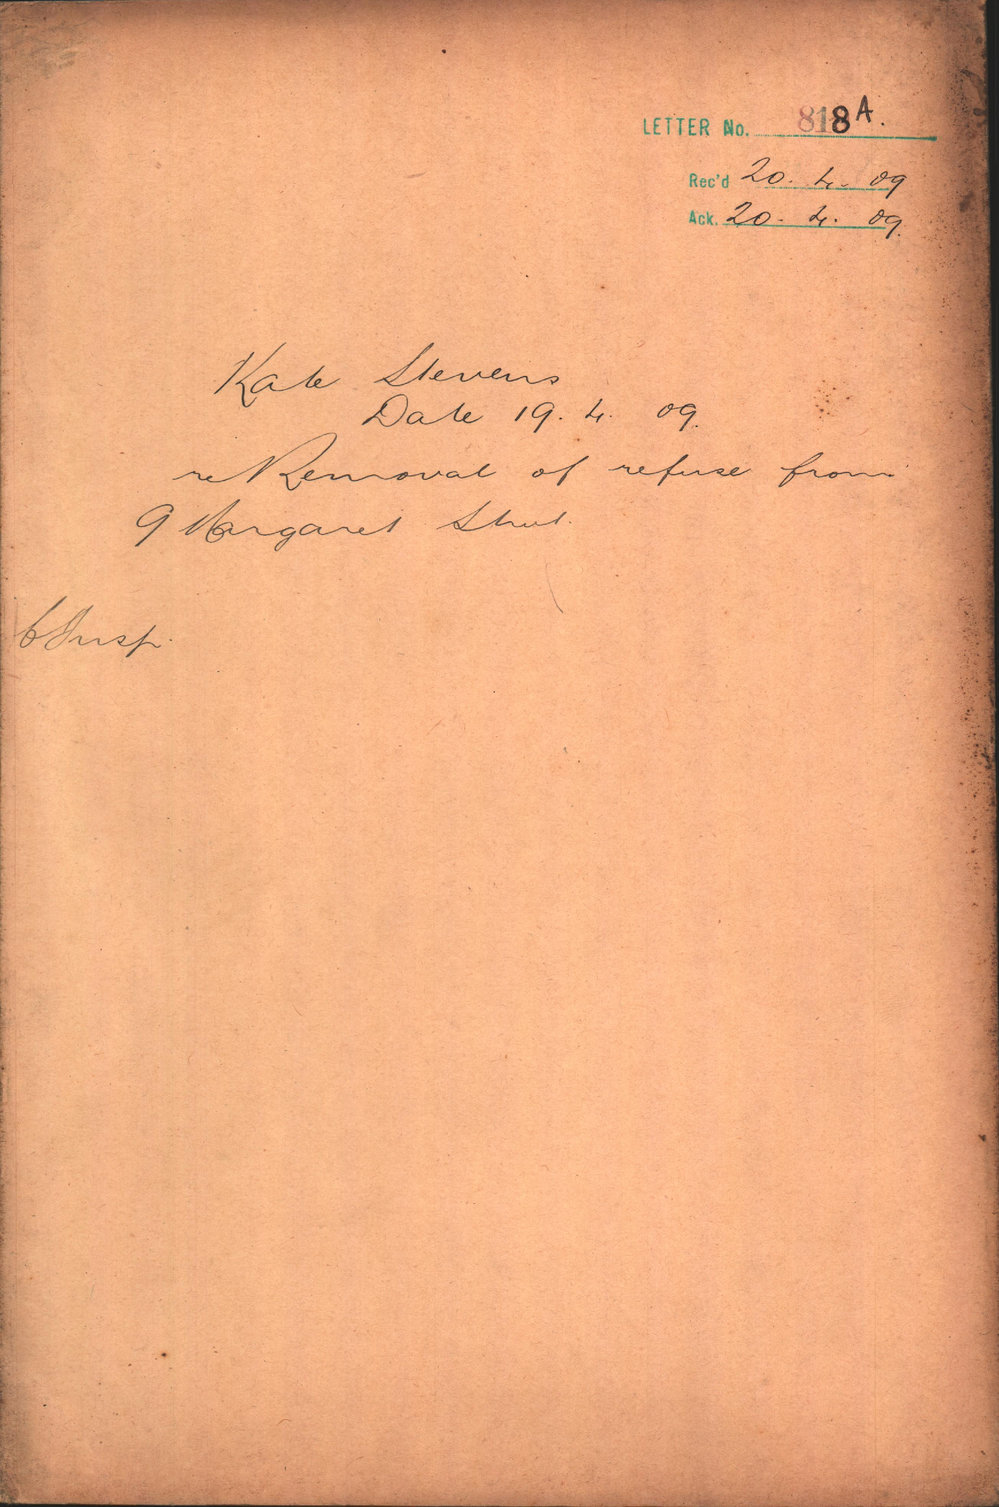 LETTER No. 818A.
Rec'd 20. 4. 09
Ack. 20. 4. 09.
Kate Stevens
Date 19. 4. 09.
re Removal of refuse from
9 Margaret Street.
C Insp.